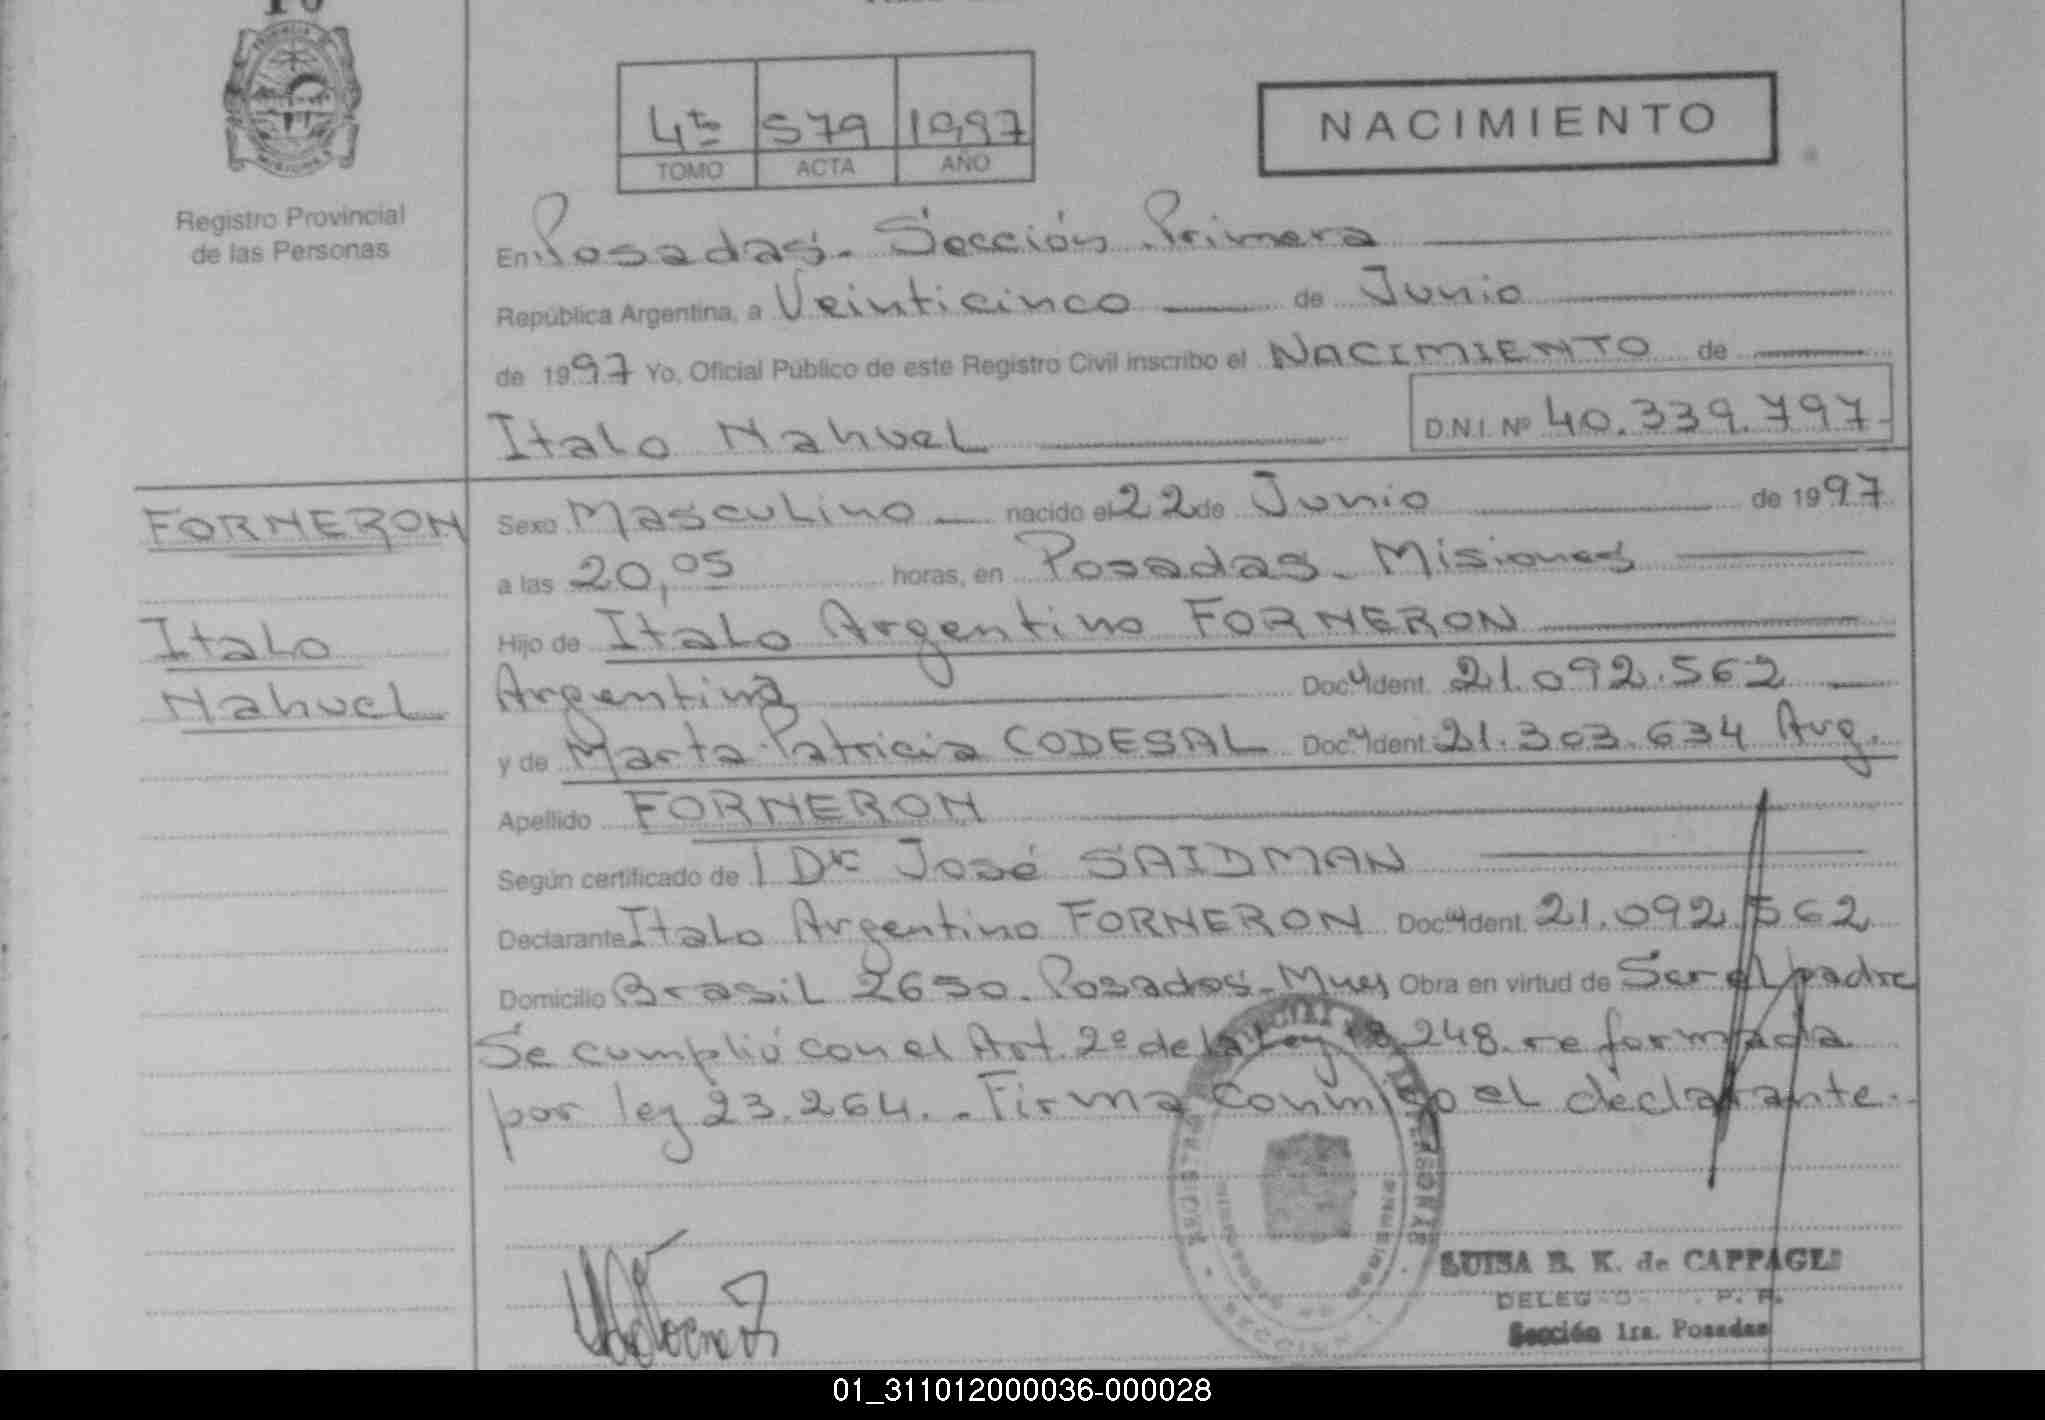 Registro Provincial
de las Personas
4to 579 1997
TOMO ACTA AÑO
NACIMIENTO
En Posadas. Sección Primera
República Argentina, a Veinticinco de Junio
de 1997 Yo, Oficial Público de este Registro Civil inscribo el NACIMIENTO de
Italo Nahuel D.N.I. Nº 40.339.797
FORNERON
Italo
Nahuel
Sexo Masculino nacido el 22 de Junio de 1997
a las 20,05 horas, en Posadas. Misiones
Hijo de Italo Argentino FORNERON
Argentina Doc. Ident. 21.092.562
y de Marta Patricia CODESAL Doc. Ident. 21.303.634 Arg.
Apellido FORNERON
Según certificado de l Dr José SAIDMAN
Declarante Italo Argentino FORNERON Doc. Ident. 21.092.562
Domicilio Brasil 2650. Posadas- Mnes Obra en virtud de Ser el padre
Se cumplió con el Art. 2º de la Ley 18.248. reformada
por ley 23.264.. Firma conmigo el declarante.
LUISA B. K. de CAPPAGLI
Sección 1ra. Posadas
01_311012000036-000028